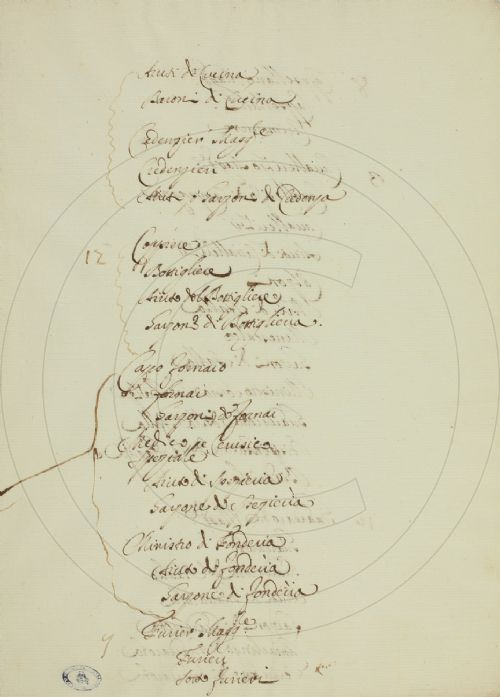 Aiuti di Cucina
Garzoni di Cucina
Credenzier Magg.re
Credenzieri
Aiuti e Garzoni di Credenza
12
Cantinie
Bottigliere
Aiuto del Bottigliere
Garzone di Bottiglieria.
Capo fornaio
fornai
Garzoni de fornai
Medico, e Cerusico
Speziale
Aiuto di Spezieria
Garzone di Spezieria
Ministro di Fonderia
Aiuto di fonderia
Garzone di fonderia
Furier Magg.re
Furieri
Sotto furieri